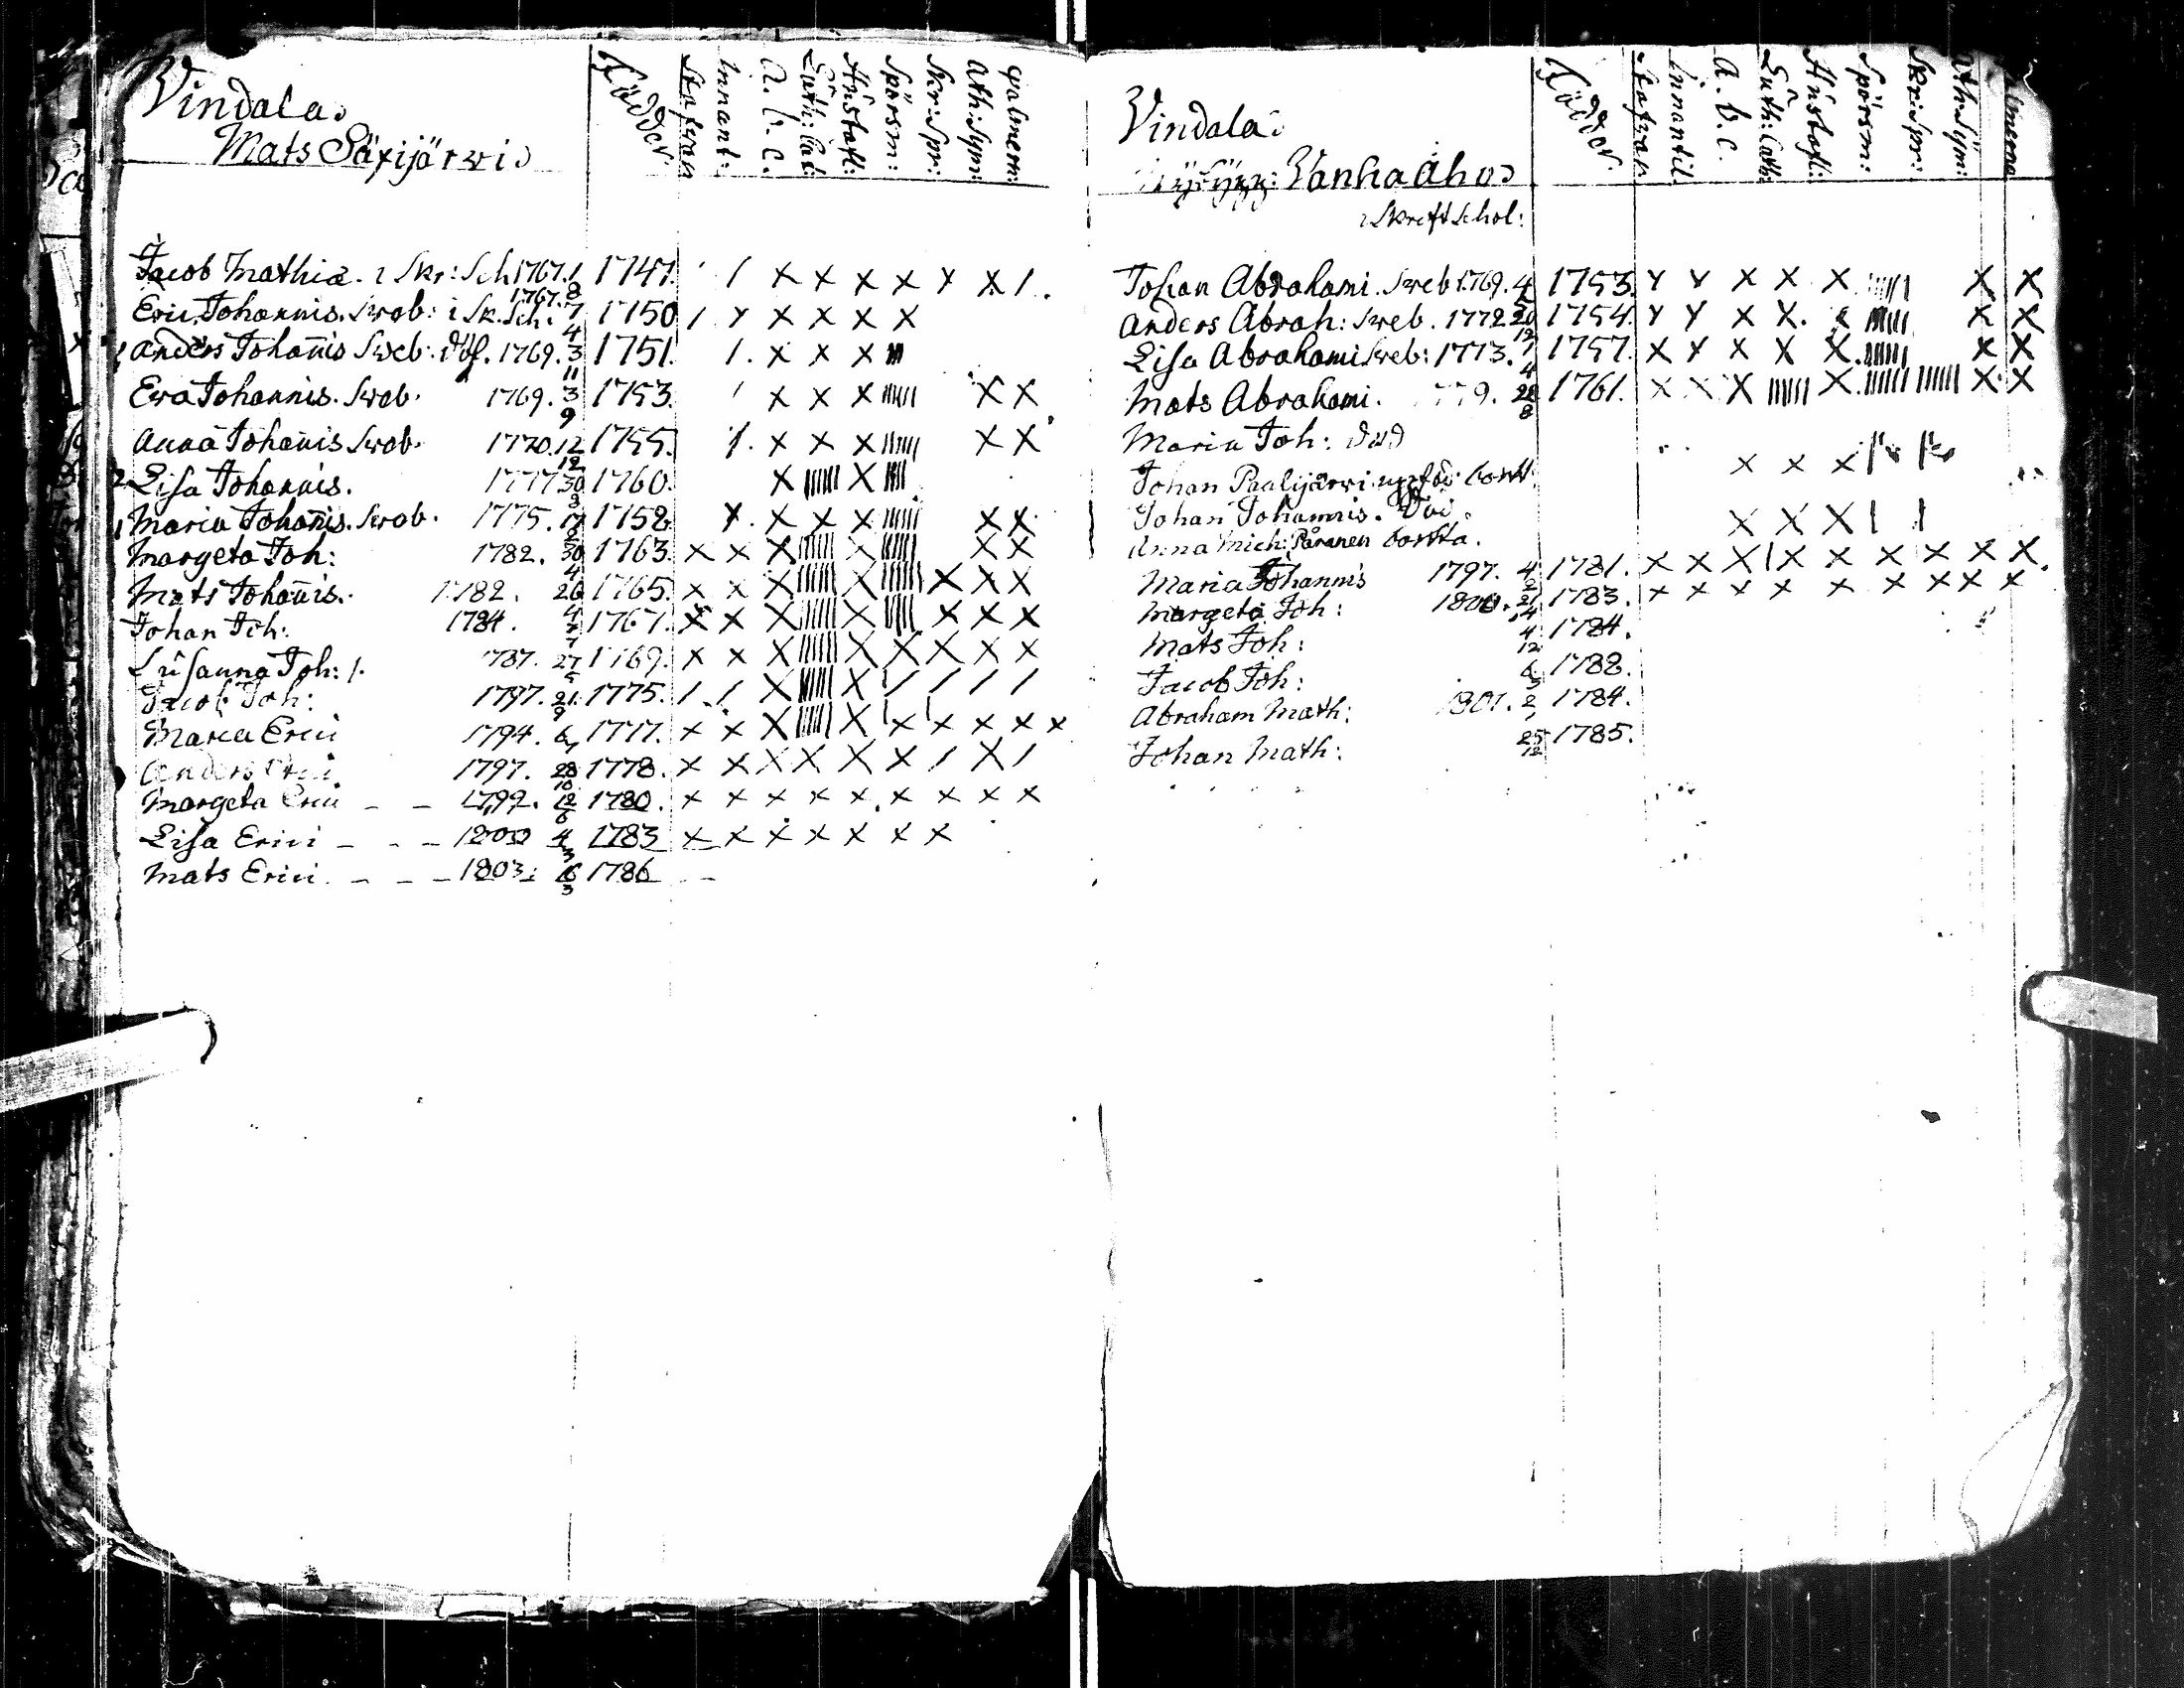 Vindala
Mats Säxijärwi
Födder.
Stafwan
Innant:
A. b. c.
Luth: Cat:
Hustafl:
Spörsm:
Skr: Spr:
Ath: Sym:
Psalmern:
Jacob Mathiæ. i Skr: Sch 1767. 1/8 1747. / x x x x x x /.
Eric Johannis. Swab: i Sk. Sch: 1767. 7/4 1750 / x x x x x
Anders Johañis Sweb: död. 1769. 3/11 1751. /. x x x
Ewa Johannis. Swab. 1769. 3/9 1753. x x x x x
Anna Johañis Swab. 1770. 12/12 1755. x x x x x
2 Lisa Johannis. 1777 30 1760. x x
1 Maria Johañis. Swab. 1775. 17 1758 x. x x x x x
Margeta Joh: 1782. 30/4 1763. x x x x x x
Mats Johañis. 1782. 26/4 1765. x x x x x x x
Johan Joh: 1784. 1767. x x x x x x x
Susanna Joh: 1787. 27/5 1769. x x x x x x x x
Jacob Joh: 1797. 21/9 1775. / / x x / / / /
Maria Erici 1794. 6 1777. x x x x x x x x x
Anders Erici 1797. 28/10 1778. x x x x x x / x /
Margeta Erici - - 1799. 12/6 1780. x x x x x x x x x
Lisa Erici - - - 1800 4/3 1783 x x x x x x x
Mats Erici. - - - 1803. 16/3 1786
Vindala
Wanha Aho
i Skrift Schol:
Födder.
Stafwan
Innantil
A. b. c.
Luth: Cath:
Hustafl:
Spörsm:
Skr: Spr:
Ath: Sym:
Johan Abrahami. Sweb 1769. 4 1753. x x x x x x x
Anders Abrah: Sweb. 1772 20/12 1754. x x x x. x x x
Lisa Abrahami Sweb: 1773. 7/4 1757. x x x x x. x x
Mats Abrahami. 28/8 1761. x x x x. x x
Maria Joh: död
Johan Paalijärwi bort. x x x
Johan Johannis. Död.
Anna Mich: Påranen bortta. x x x / /
Maria Johannis 1797. 4/2 1781. x x x x x x x x x.
Margeta Joh: 1800. 21 1783. x x x x x x x x x
Mats Joh: 4/12 1784.
Jacob Joh: 6 1788.
Abraham Math: 1801. 2 1784.
Johan Math: 25/12 1785.